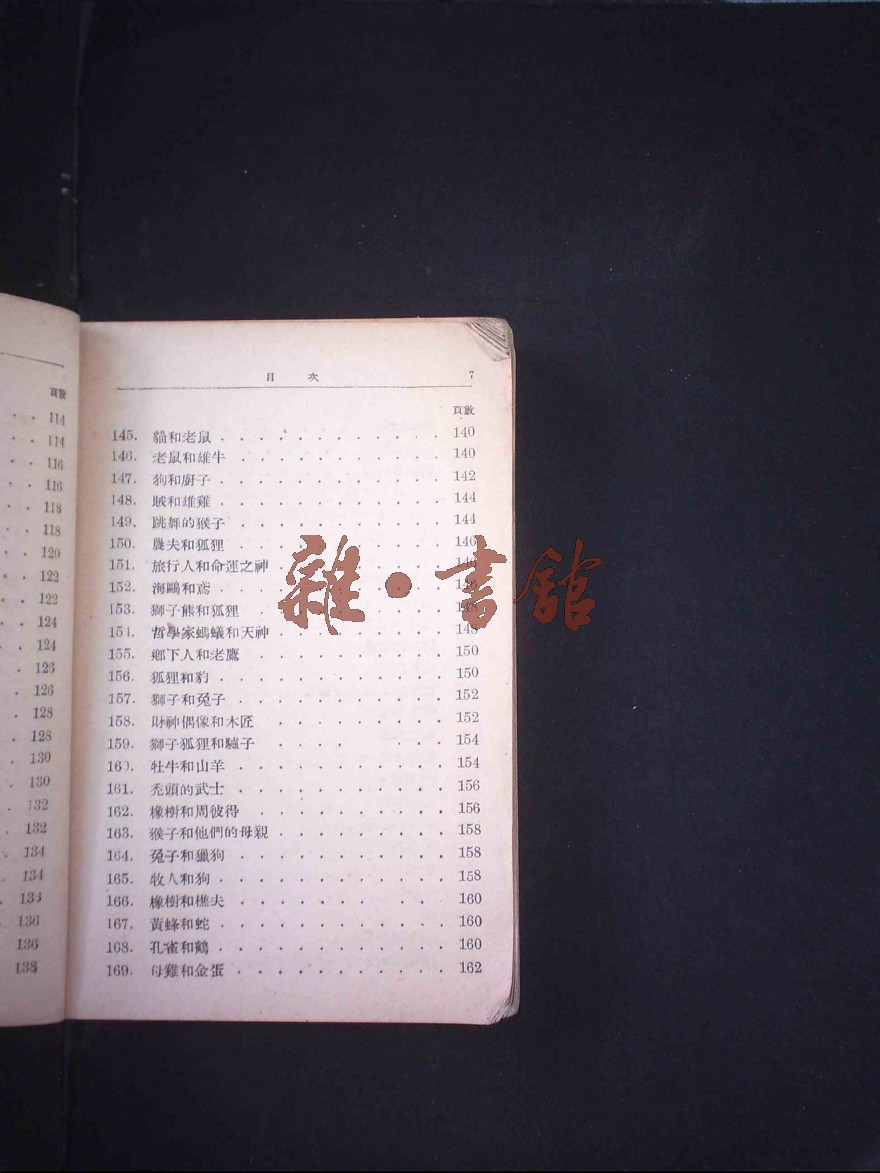 頁數
114
114
116
116
118
118
120
122
122
124
124
126
126
128
128
130
130
132
132
134
134
136
136
138
目 次 7
頁數
145. 貓和老鼠 . . . . . . . . . . . . 140
146. 老鼠和雄牛 . . . . . . . . . . . 140
147. 狗和廚子 . . . . . . . . . . . . 142
148. 賊和雄雞 . . . . . . . . . . . . 144
149. 跳舞的猴子 . . . . . . . . . . . 144
150. 農夫和狐狸 . . . . . . . . . . . 146
151. 旅行人和命運之神 . . . . . . . . .
152. 海鷗和鳶 . . . . . . . . . . . .
153. 獅子熊和狐狸 . . . . . . . . . .
154. 哲學家螞蟻和天神 . . . . . . . . . 148
155. 鄉下人和老鷹 . . . . . . . . . . 150
156. 狐狸和豹 . . . . . . . . . . . . 150
157. 獅子和兔子 . . . . . . . . . . . 152
158. 財神偶像和木匠 . . . . . . . . . 152
159. 獅子狐狸和驢子 . . . . . . . 154
160. 牡牛和山羊 . . . . . . . . . . . 154
161. 禿頭的武士 . . . . . . . . . . . 156
162. 橡樹和周彼得 . . . . . . . . . . 156
163. 猴子和他們的母親 . . . . . . . . . 158
164. 兔子和獵狗 . . . . . . . . . . . 158
165. 牧人和狗 . . . . . . . . . . . . 158
166. 橡樹和樵夫 . . . . . . . . . . . 160
167. 黃蜂和蛇 . . . . . . . . . . . . 160
168. 孔雀和鶴 . . . . . . . . . . . . 160
169. 母雞和金蛋 . . . . . . . . . . . 162
雜·書館